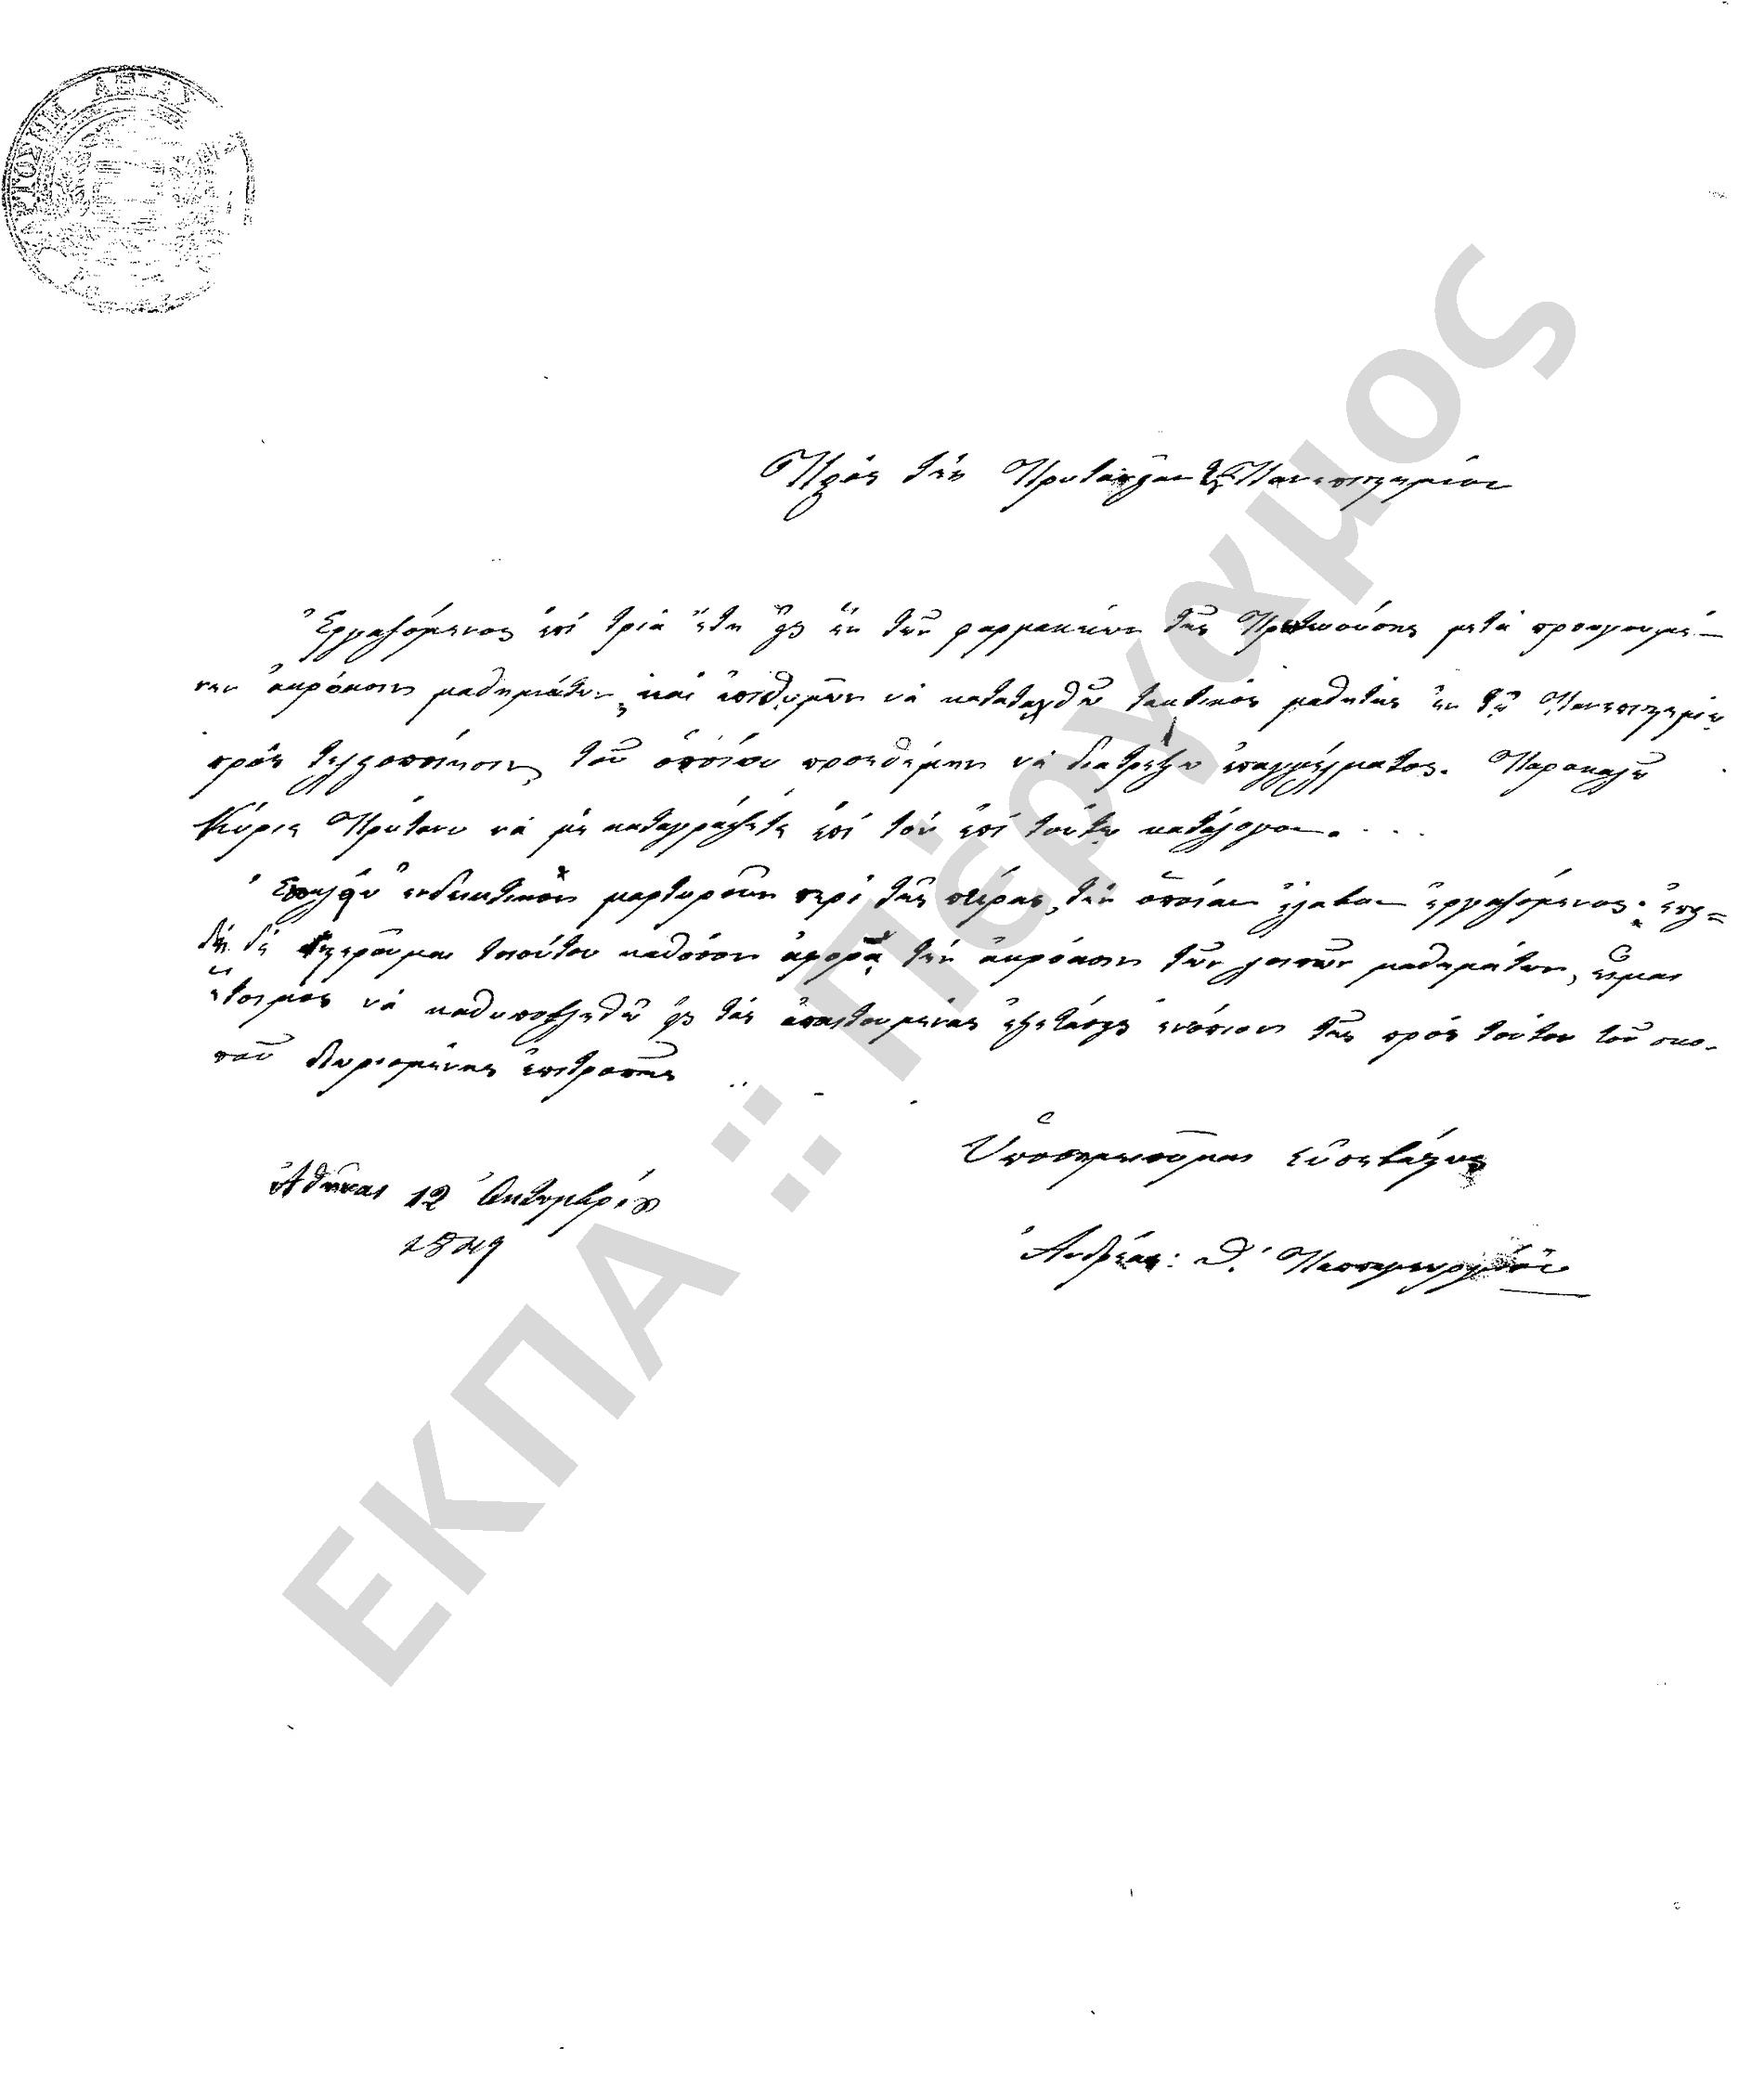 Πρὸς τὴν Πρυτανείαν τοῦ Πανεπιστημίου
Ἐργαζόμενος ἐπὶ τρία ἔτη εἰς ἓν τῶν φαρμακείων τῆς Πρωτευούσης μετὰ προηγουμέ-
νην ἀκρόασιν μαθημάτων, καὶ ἐπιθυμῶν νὰ καταταχθῶ τακτικὸς μαθητὴς ἐν τῷ Πανεπιστημίῳ
πρὸς τελειοποίησιν, τοῦ ὁποίου προεθέμην νὰ διατρέξω ἐπαγγέλματος. Παρακαλῶ
Κύριε Πρύτανι νὰ μὲ καταγράψητε ἐπὶ τὸν ἐπὶ τούτῳ κατάλογον.
ἐνδεικτικὸν μαρτυροῦν περὶ τῆς πείρας, τὴν ὁποίαν ἔλαβον ἐργαζόμενος· ἐπει-
δὴ δὲ στεροῦμαι τοιούτου καθόσον ἀφορᾷ τὴν ἀκρόασιν τῶν λοιπῶν μαθημάτων, εἶμαι
ἕτοιμος νὰ καθυποβληθῶ εἰς τὰς ἀπαιτουμένας ἐξετάσεις ἐνώπιον τῆς πρὸς τοῦτον τοῦ σκο-
ποῦ διωρισμένης ἐπιτροπῆς
Ὑποσημειοῦμαι εὐσεβάστως
Ἀθῆναι 12 Ὀκτωμβρίου
1849
Ἀνδρέας: Θ.
ΕΚΠΑ :: Πέργαμος